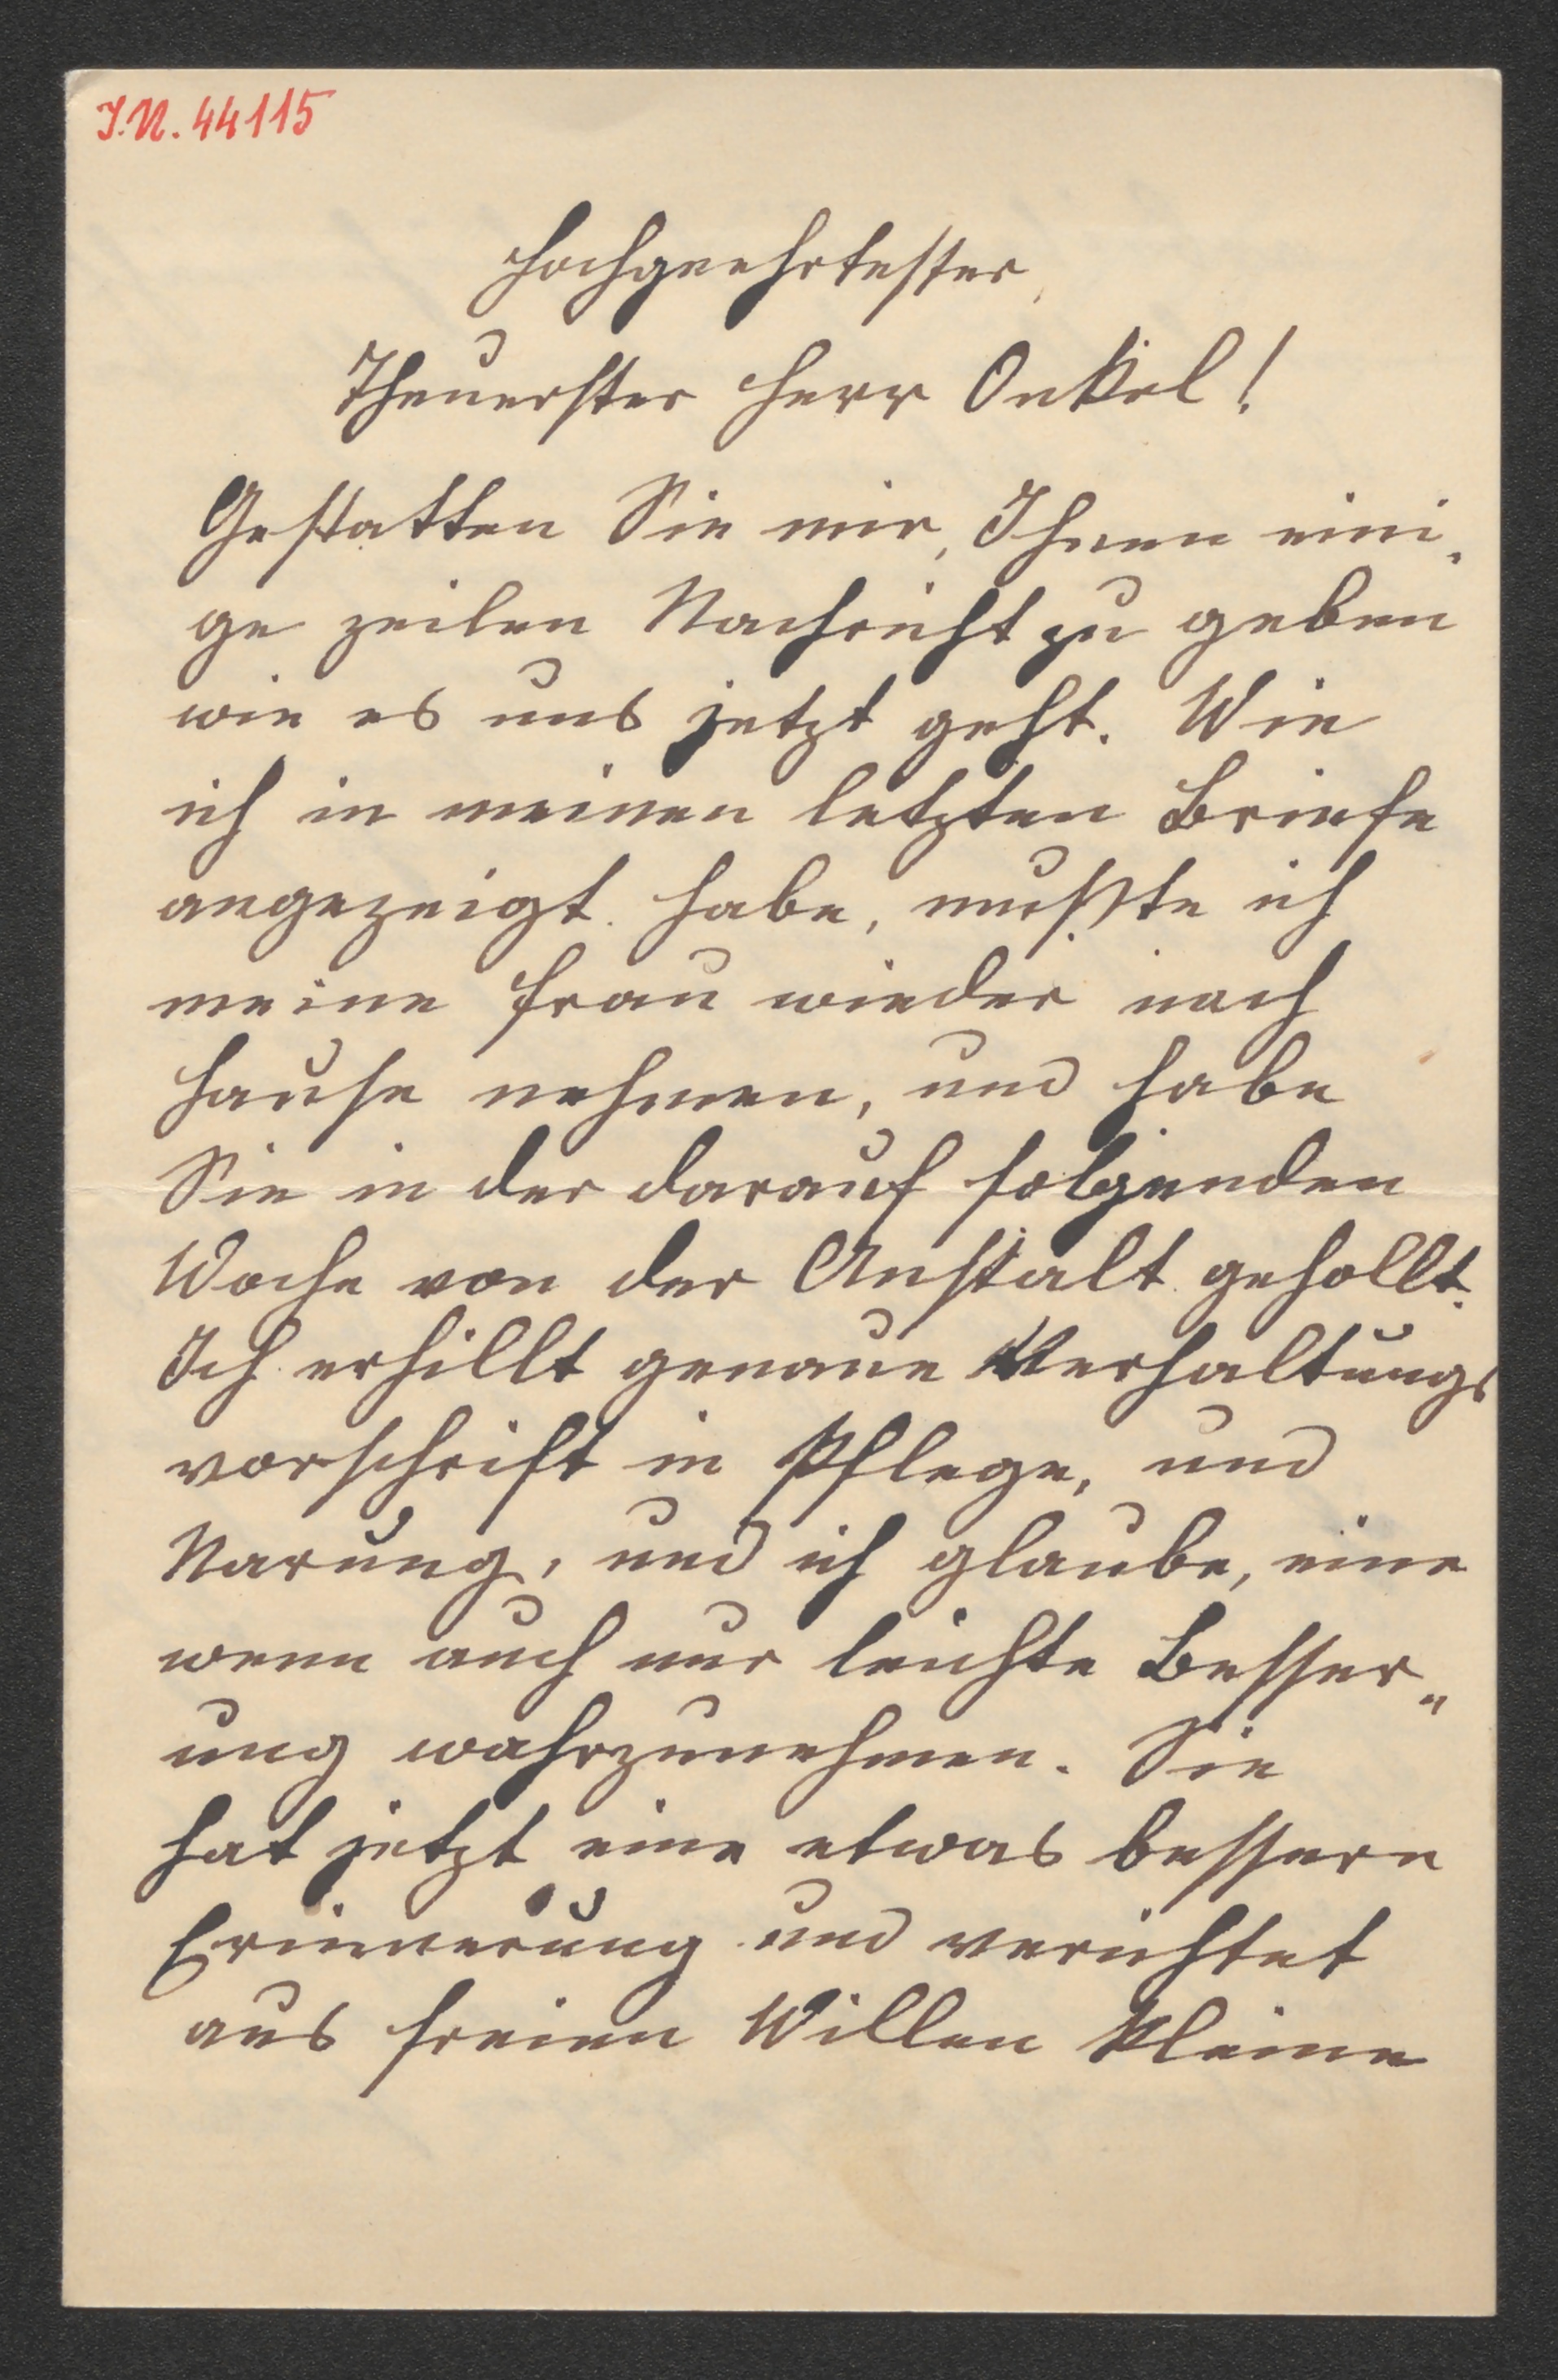 I.N. 44115
Hochgeehrtester,
Theuerster Herr Onkel!
Gestatten Sie mir, Ihnen eini-
ge zeilen Nachricht zu geben
wie es uns jetzt geht. Wie
ich in meinen letzten Briefe
angezeigt habe, mußte ich
meine Frau wieder nach
Hause nehmen, und habe
Sie in der darauf folgenden
Woche von der Anstalt gehollt.
Ich erhillt genaue Verhaltungs
vorschrift in Pflege, und
Narung, und ich glaube, eine
wenn auch nur leichte Besser„
ung wahrzunehmen. Sie
hat jetzt eine etwas bessere
Erinnerung und verichtet
aus freien Willen kleine